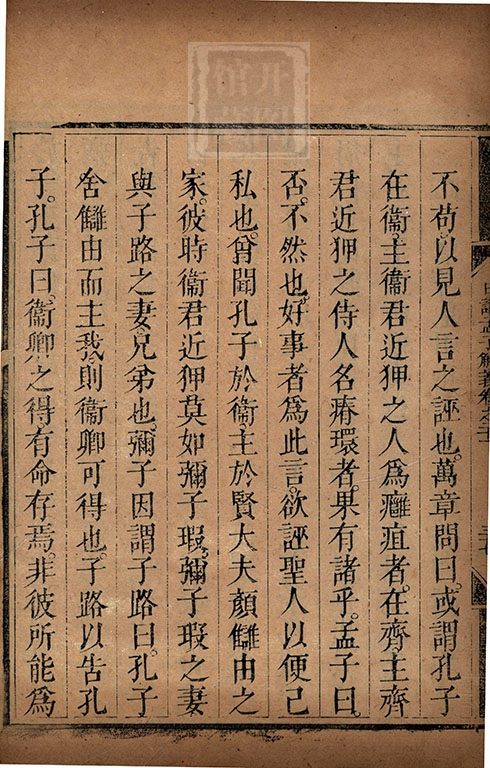 不苟。以見人言之誣也。萬章問曰。或謂孔子
在衞。主衞君近狎之人爲癰疽者。在齊主齊
君近狎之侍人名瘠環者。果有諸乎。孟子曰。
否。不然也。好事者爲此言。欲誣聖人以便己
私也。嘗聞孔子於衞主於賢大夫顏讎由之
家。彼時衞君近狎莫如彌子瑕。彌子瑕之妻
與子路之妻兄弟也。彌子因謂子路曰。孔子
舍讎由而主我。則衞卿可得也。子路以告孔
子。孔子曰。衞卿之得有命存焉。非彼所能爲